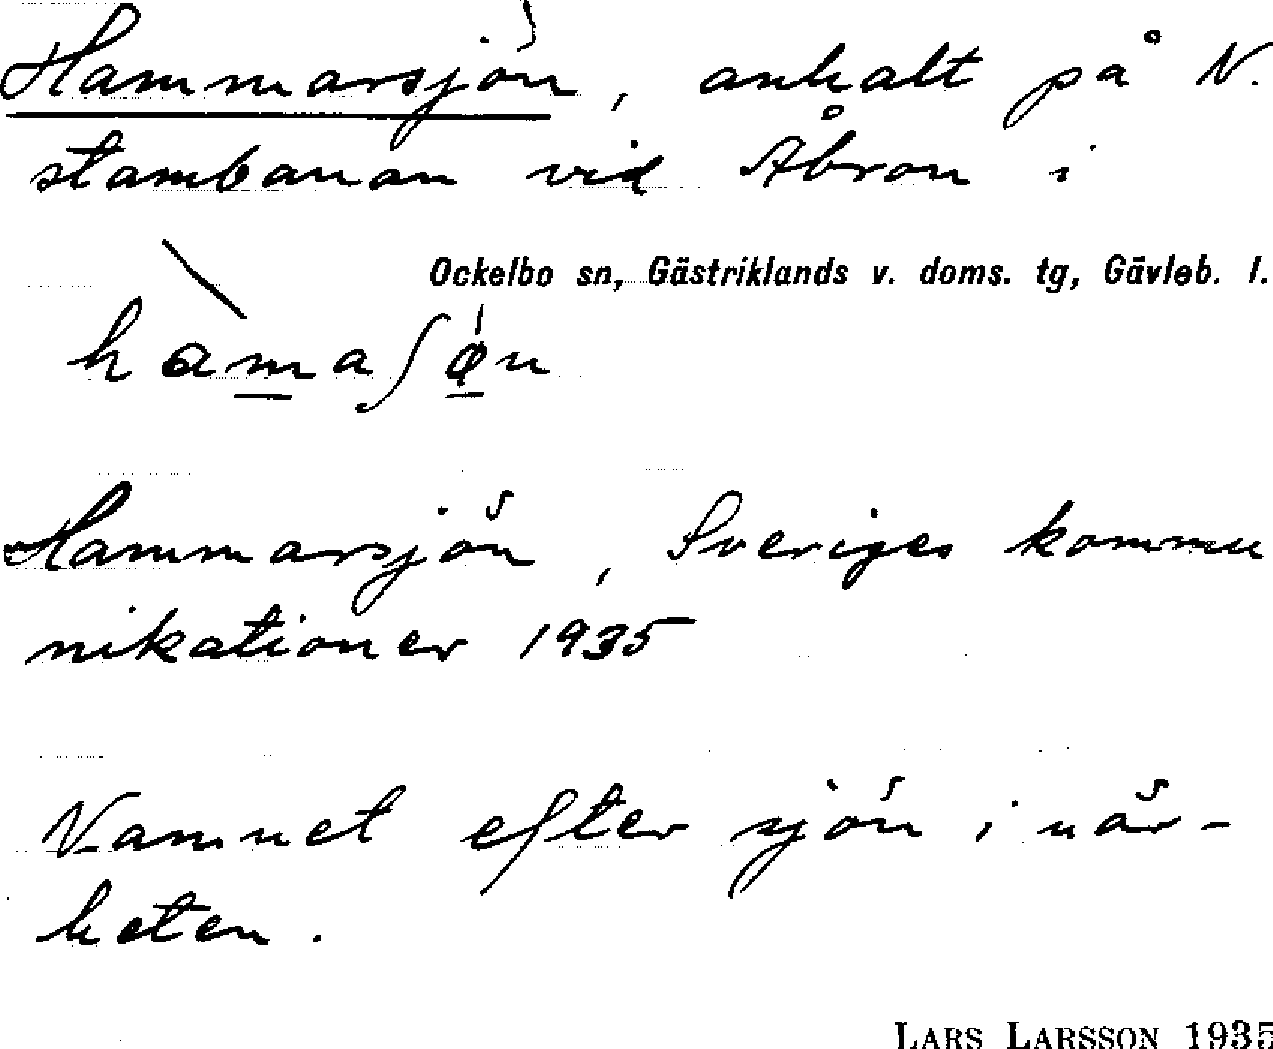 Hammarsjön, anhalt på N.
stambanan vid Åbron i
Ockelbo sn, Gästriklands v. doms. tg, Gävleb. l.
hàmaʃø̀n
Hammarsjön, Sveriges kommu
nikationer 1935
Namnet efter sjön i när-
heten.
LARS LARSSON 1935